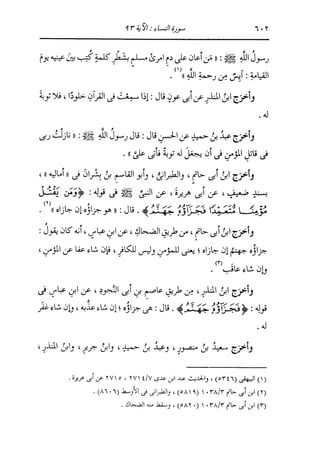 ٦٠٢ سورة النساء : الآية ٩٣
رسولُ اللَّهِ ﷺ : « مَن أعان على دمِ امرئٍ مسلمٍ بشَطْرِ كلمةٍ كُتِب بينَ عينيه يومَ
القيامةِ : آيِسٌ مِن رحمةِ اللَّهِ »(١) .
وأخرَج ابنُ المنذرِ عن أبى عونٍ قال : إذا سمِعْتَ فى القرآنِ خلودًا ، فلا توبةَ
له .
وأخرَج عبدُ بنُ حميدٍ عن الحسنِ قال : قال رسولُ اللَّهِ ﷺ : « نازَلْتُ ربى
فى قاتلِ المؤمنِ فى أن يجعَلَ له توبةً فأتى علىَّ » .
وأخرَج ابنُ أبى حاتمٍ ، والطبرانىُّ ، وأبو القاسمِ بنُ بِشْرانَ فى « أماليه » ،
بسندٍ ضعيفٍ ، عن أبى هريرةَ ، عن النبىِّ ﷺ فى قولِه : ﴿ وَمَن يَقْتُلْ
مُؤْمِنًا مُّتَعَمِّدًا فَجَزَآؤُهُ جَهَنَّمُ ﴾ . قال : « هو جزاؤُه إن جازاه »(٢) .
وأخرَج ابنُ أبى حاتمٍ ، من طريقِ الضحاكِ ، عن ابنِ عباسٍ ، أنه كان يقولُ :
جزاؤُه جهنمُ إن جازاه ؛ يعنى للمؤمنِ وليس للكافرِ ، فإن شاء عفا عن المؤمنِ ،
وإن شاء عاقَب(٣) .
وأخرَج ابنُ المنذرِ ، مِن طريقِ عاصمِ بنِ أبى النَّجودِ ، عن ابنِ عباسٍ فى
قولِه : ﴿ فَجَزَآؤُهُ جَهَنَّمُ ﴾ . قال : هى جزاؤُه ؛ إن شاء عذَّبه ، وإن شاء غفَر
له .
وأخرَج سعيدُ بنُ منصورٍ ، وعبدُ بنُ حميدٍ ، وابنُ جريرٍ ، وابنُ المنذرِ ،
(١) البيهقى (٥٣٤٦) ، والحديث عند ابن عدى ٢٧١٤/٧ ، ٢٧١٥ عن أبى هريرة .
(٢) ابن أبى حاتم ١٠٣٨/٣ (٥٨١٩) ، والطبرانى فى الأوسط (٨٦٠٦) .
(٣) ابن أبى حاتم ١٠٣٨/٣ (٥٨٢٠) ، وسقط منه الضحاك .